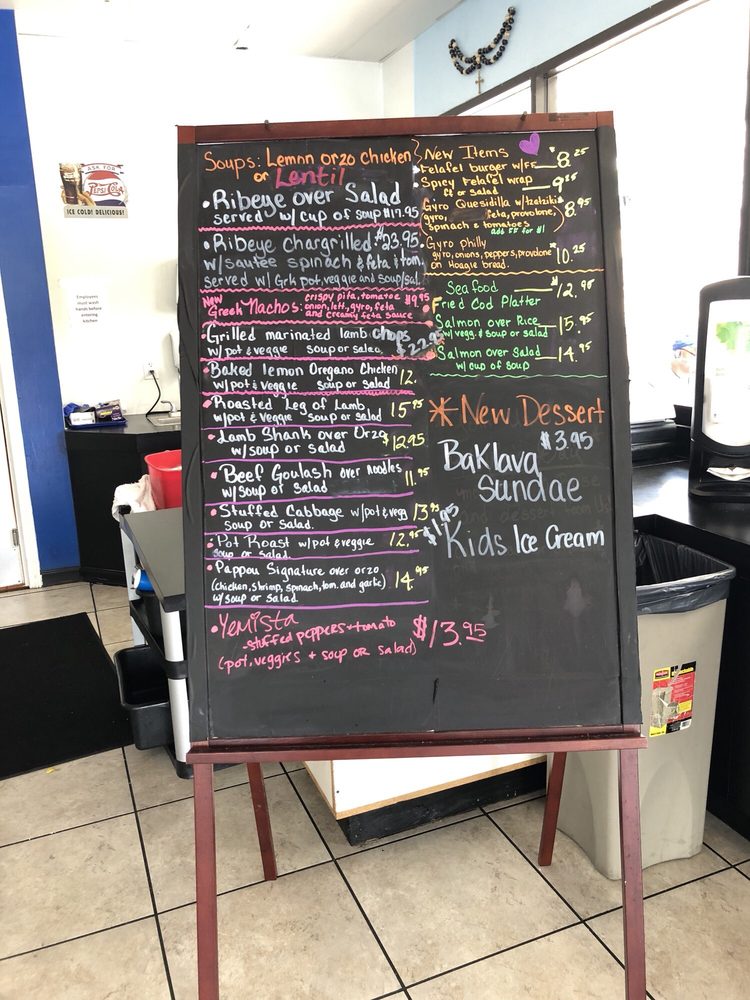 ASK FOR
PEPSI-COLA
ICE COLD! DELICIOUS!
Employees
must wash
hands before
entering
kitchen
Soups: Lemon orzo chicken
or Lentil
• Ribeye over Salad
served w/ cup of soup $17.95
• Ribeye chargrilled $23.95
w/sautee spinach & feta & tom.
served w/ Grk pot, veggie and soup/sal.
New
Greek Nachos: crispy pita, tomatoe $9.95
onion, lett, gyro, feta
and creamy feta sauce
• Grilled marinated lamb chops
w/pot & veggie soup or salad $22.95
• Baked lemon Oregano Chicken
w/pot & veggie soup or salad 12.
• Roasted Leg of Lamb
w/pot & veggie soup or salad 15.95
• Lamb Shank over Orzo $12.95
w/soup or salad
• Beef Goulash over noodles
w/soup or salad 11.95
• Stuffed Cabbage w/pot & vegg 13.95
soup or salad.
• Pot Roast w/pot & veggie 12.95
soup or salad.
• Pappou Signature over orzo
(chicken, shrimp, spinach, tom. and garlic) 14.95
w/soup or salad
• Yemista
-stuffed peppers + tomato $13.95
(pot, veggies + soup or salad)
New Items
Felafel burger w/FF $8.25
Spicy Felafel wrap
ff or salad 9.25
Gyro Quesidilla w/tzatziki
gyro, feta, provolone, 8.95
spinach & tomatoes
add FF for $1
Gyro philly
gyro, onions, peppers, provolone
on Hoagie bread. 10.25
Seafood $12.95
Fried Cod Platter
Salmon over Rice 15.95
w/ vegg. & soup or salad
Salmon over Salad 14.95
w/ cup of soup
* New Dessert
$3.95
Baklava
Sundae
$1.95
Kids Ice Cream